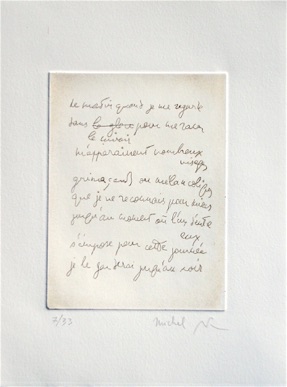 Le matin quand je me regarde
dans la glace pour me raser
le miroir
m'apparaissent nombreux
visages
grimaçants ou mélancoliques
que je ne reconnais pas
jusqu'au moment où l'un
eux
s'impose pour cette journée
je le garderai jusqu'au soir
2/33 Michel